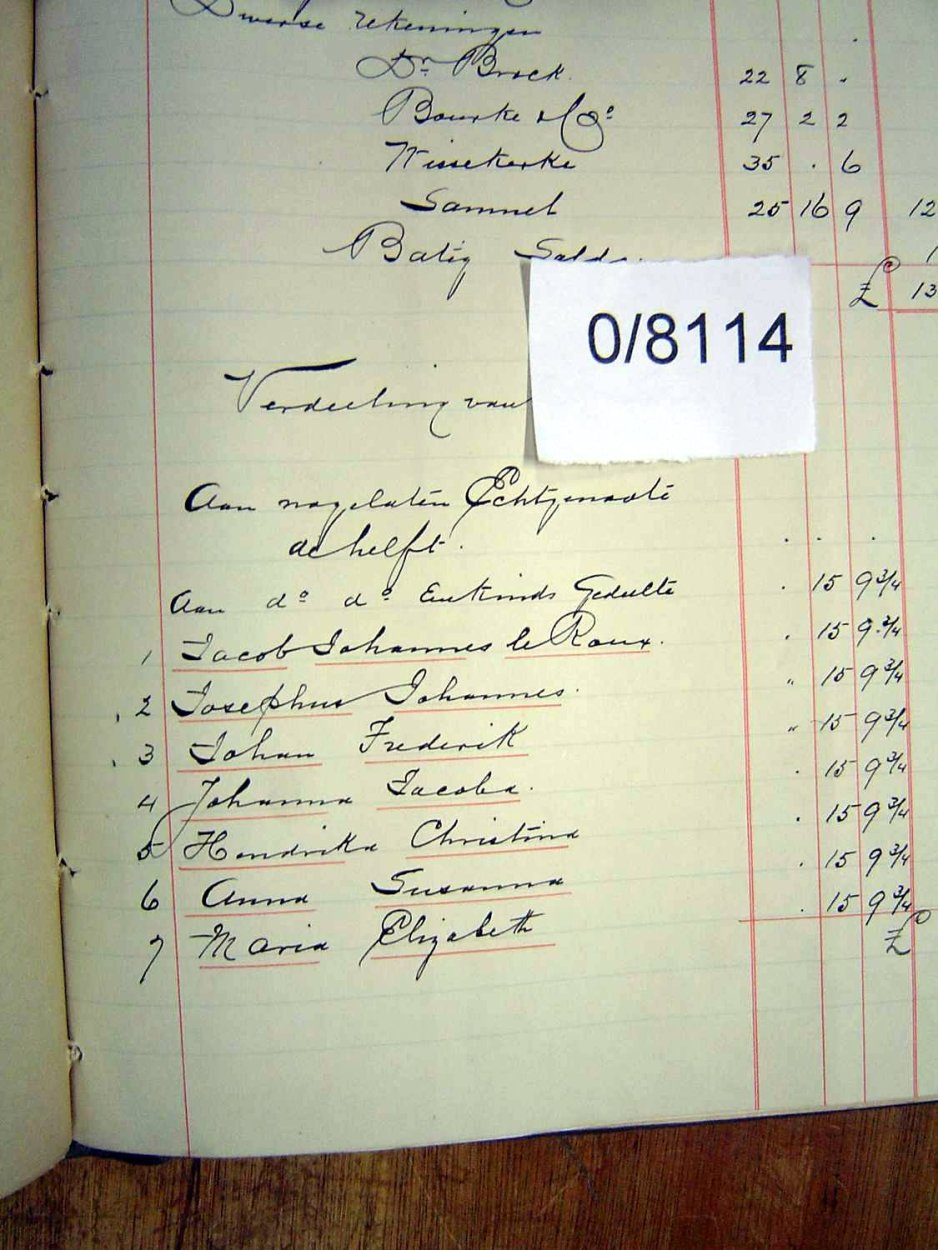 Diverse rekeningen
Dr Brock. 22 8 .
Bourke & Co 27 2 2
Wissekerke 35 . 6
Samuel 25 16 9 12
Batig Saldo
£ 13
0/8114
Verdeeling van
Aan nagelaten Echtgenoote
de helft.
Aan do do Eenkinds Gedeelte . 15 9 3/4
1 Jacob Johannes le Roux. . 15 9 3/4
2 Josephus Johannes. " 15 9 3/4
3 Johan Frederik " 15 9 3/4
4 Johanna Jacoba. . 15 9 3/4
5 Hendrika Christina . 15 9 3/4
6 Anna Susanna . 15 9 3/4
7 Maria Elizabeth . 15 9 3/4
£